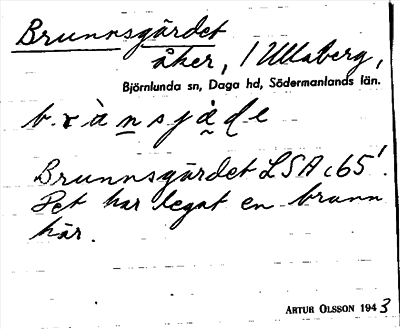 Brunnsgärdet
åker, / Ullaberg,
Björnlunda sn, Daga hd, Södermanlands län.
brànsjåde
Brunnsgärdet LSA c65'.
Det har legat en brunn
här.
ARTUR OLSSON 1943